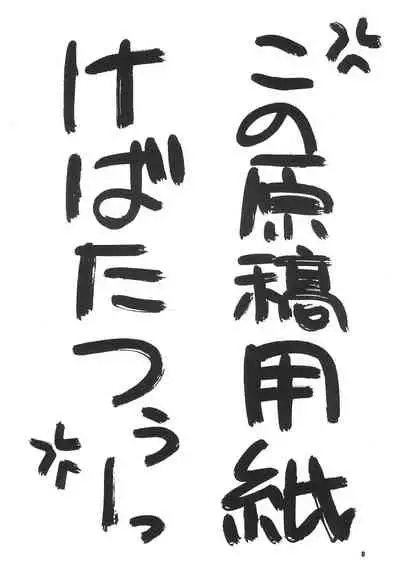 この原稿用紙
けばたつぅーっ
8